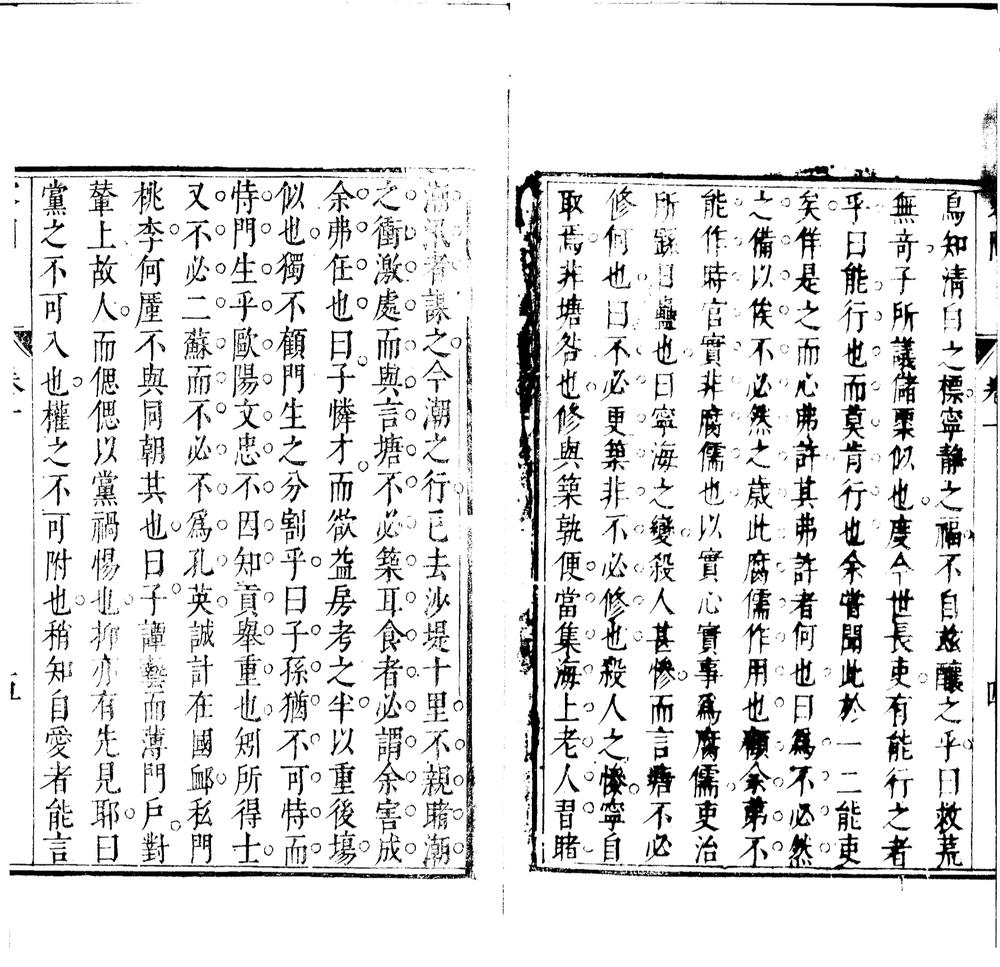 鳥知清白之標寧靜之福不自茲釀之乎曰救荒
無奇子所議儲粟似也度今世長吏有能行之者
乎曰能行也而莫肯行也余嘗聞此於一二能吏
矣佯是之而心弗許其弗許者何也曰爲不必然
之備以俟不必然之歲此腐儒作用也顧余第不
能作時官實非腐儒也以實心實事爲腐儒吏治
所繇日蠱也曰寧海之變殺人甚慘而言塘不必
修何也曰不必更築非不必修也殺人之慘寧自
取焉非塘咎也修與築孰便當集海上老人習睹
潮汛者謀之今潮之行已去沙堤十里不親睹潮
之衝激處而與言塘不必築耳食者必謂余害成
余弗任也曰子憐才而欲益房考之半以重後塲
似也獨不顧門生之分割乎曰子孫猶不可恃而
恃門生乎歐陽文忠不因知貢舉重也矧所得士
又不必二蘇而不必不爲孔英誠計在國卹私門
桃李何厪不與同朝其也曰子譚藝而薄門戶對
輦上故人而偲偲以黨禍惕也抑亦有先見耶曰
黨之不可入也權之不可附也稍知自愛者能言
卷一
四
五